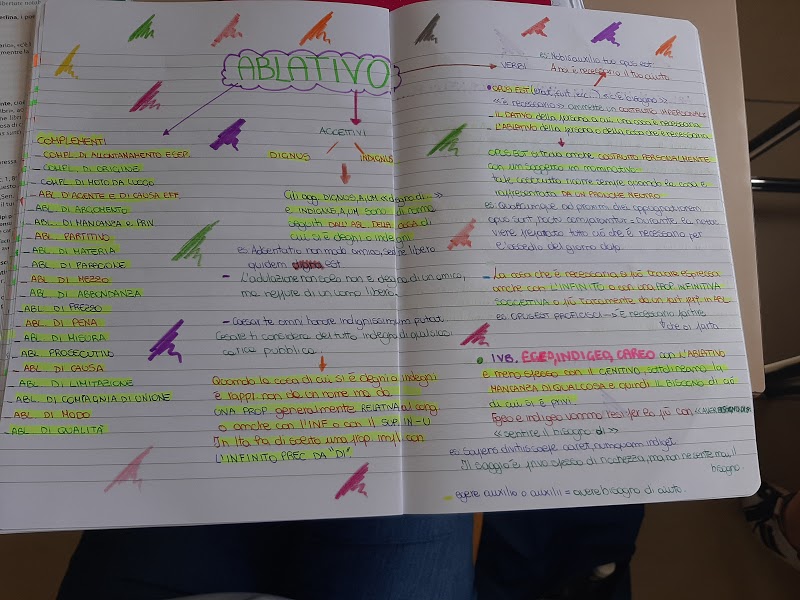 ABLATIVO
COMPLEMENTI
- COMPL. DI ALLONTANAMENTO E SEP.
- COMPL. DI ORIGINE
- COMPL. DI MOTO DA LUOGO
- ABL. D'AGENTE E DI CAUSA EFF.
- ABL. DI ARGOMENTO
- ABL. DI MANCANZA E PRIV.
- ABL. PARTITIVO
- ABL. DI MATERIA
- ABL. DI PARAGONE
- ABL. DI MEZZO
- ABL. DI ABBONDANZA
- ABL. DI PREZZO
- ABL. DI PENA
- ABL. DI MISURA
- ABL. PROSECUTIVO
- ABL. DI CAUSA
- ABL. DI LIMITAZIONE
- ABL. DI COMPAGNIA DI UNIONE
- ABL. DI MODO
- ABL. DI QUALITÀ
AGGETTIVI
DIGNUS INDIGNUS
Gli agg. DIGNUS, A, UM «degno di...»
e INDIGNUS, A, UM sono di norma
seguiti DALL'ABL. DELLA COSA di
cui si è degni o indegni
es. Adsentatio non modo amico, sed ne libero
quidem digna est
- L'adulazione non solo non è degna di un amico,
ma neppure di un uomo libero.
- Caesar te omni honore indignissimum putat
Cesare ti considera del tutto indegno di qualsiasi
carica pubblica.
Quando la cosa di cui si è degni o indegni
è rappr. non da un nome ma da
UNA PROP. generalmente RELATIVA al cong.
o anche con l'INF. o con il SUP. IN -U
In ita. fa di solito una prop. impl. con
L'INFINITO PREC. DA "DI"
VERBI
es. Nobis auxilio tuo opus est
A noi è necessario il tuo aiuto
• OPUS EST (erat, fuit, ecc..) «c'è bisogno»
«è necessario» ammette un COSTRUTTO IMPERSONALE
- IL DATIVO della persona a cui una cosa è necessaria
- L'ABLATIVO della persona o della cosa che è necessaria
OPUS EST si trova anche COSTRUITO PERSONALMENTE
con un soggetto in nominativo
tale costrutto ricorre sempre quando la cosa è
rappresentata DA UN PRON. NEUTRO
es. Quaecumque ad proximi diei oppugnationem
opus sunt, noctu comparantur - Durante la notte
viene preparato tutto ciò che è necessario per
l'assedio del giorno dopo.
- La cosa che è necessaria si può trovare espressa
anche con L'INFINITO o con una PROP. INFINITIVA
SOGGETTIVA o più raramente da un part. perf. in ABL.
es. OPUS EST PROFICISCI → È necessario partire
che si parta
• I VB. EGEO, INDIGEO, CAREO con L'ABLATIVO
e meno spesso con il GENITIVO, sottolineano la
MANCANZA DI QUALCOSA e quindi IL BISOGNO di ciò
di cui si è PRIVI
Egeo e indigeo vanno resi per lo più con «AVER BISOGNO DI»
«sentire il bisogno di»
es. Sapiens divitiis saepe caret, numquam indiget
Il saggio è privo spesso di ricchezza, ma non ne sente mai il
bisogno.
- egere auxilio o auxilii = avere bisogno di aiuto.